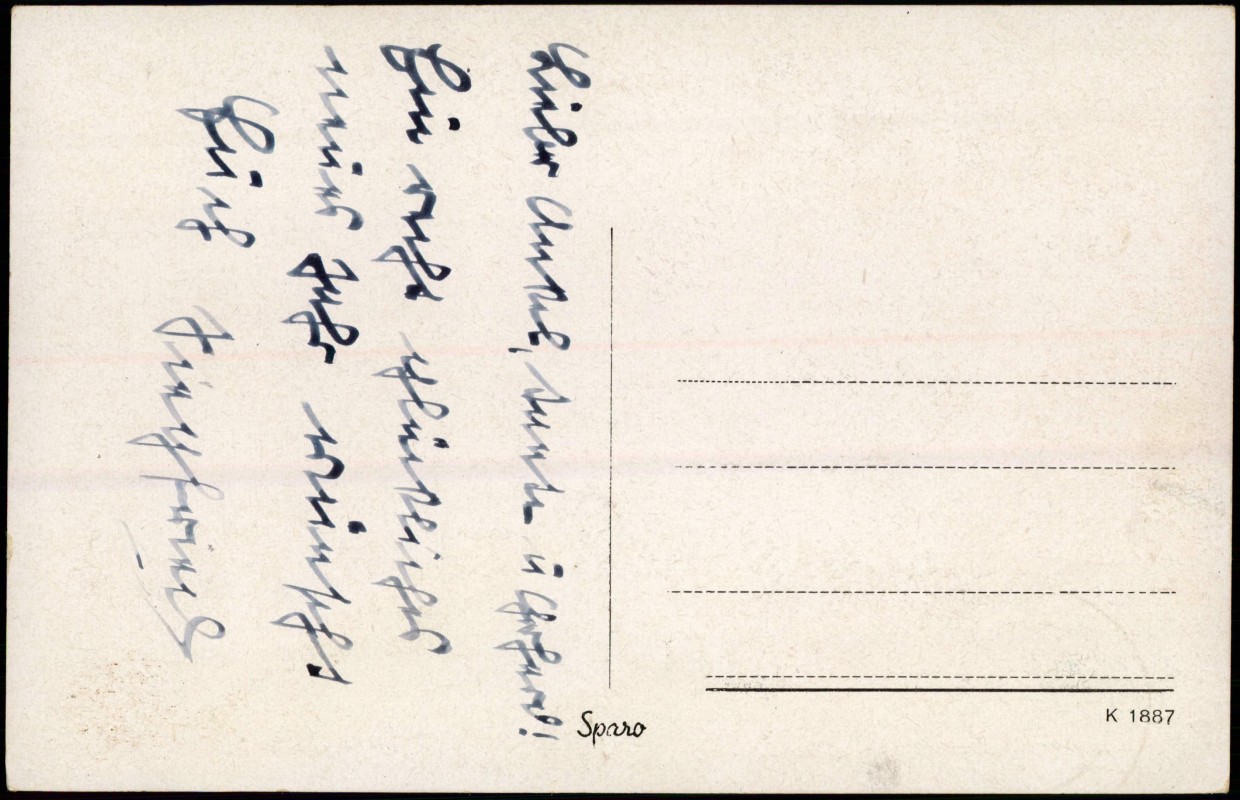 Lieber Onkel, Tante u Gerhard!
Ein recht glückliches
neues Jahr wünscht
Euch
Sparo
K 1887